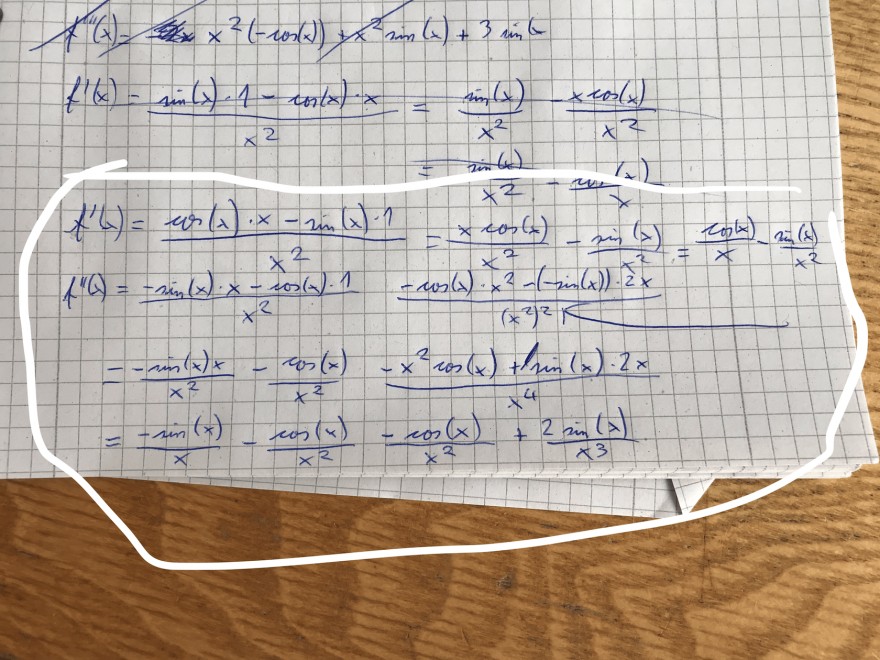 f''(x) = x²(-cos(x)) + x² sin(x) + 3 sin(x
f'(x) = sin(x)·1 - cos(x)·x / x² = sin(x) / x² - x cos(x) / x²
= sin(x) / x² - cos(x) / x
f'(x) = cos(x)·x - sin(x)·1 / x² = x cos(x) / x² - sin(x) / x² = cos(x) / x - sin(x) / x²
f''(x) = -sin(x)·x - cos(x)·1 / x² -cos(x)·x² - (-sin(x))·2x / (x²)²
= -sin(x)x / x² - cos(x) / x² -x² cos(x) + sin(x)·2x / x⁴
= -sin(x) / x - cos(x) / x² - cos(x) / x² + 2 sin(x) / x3